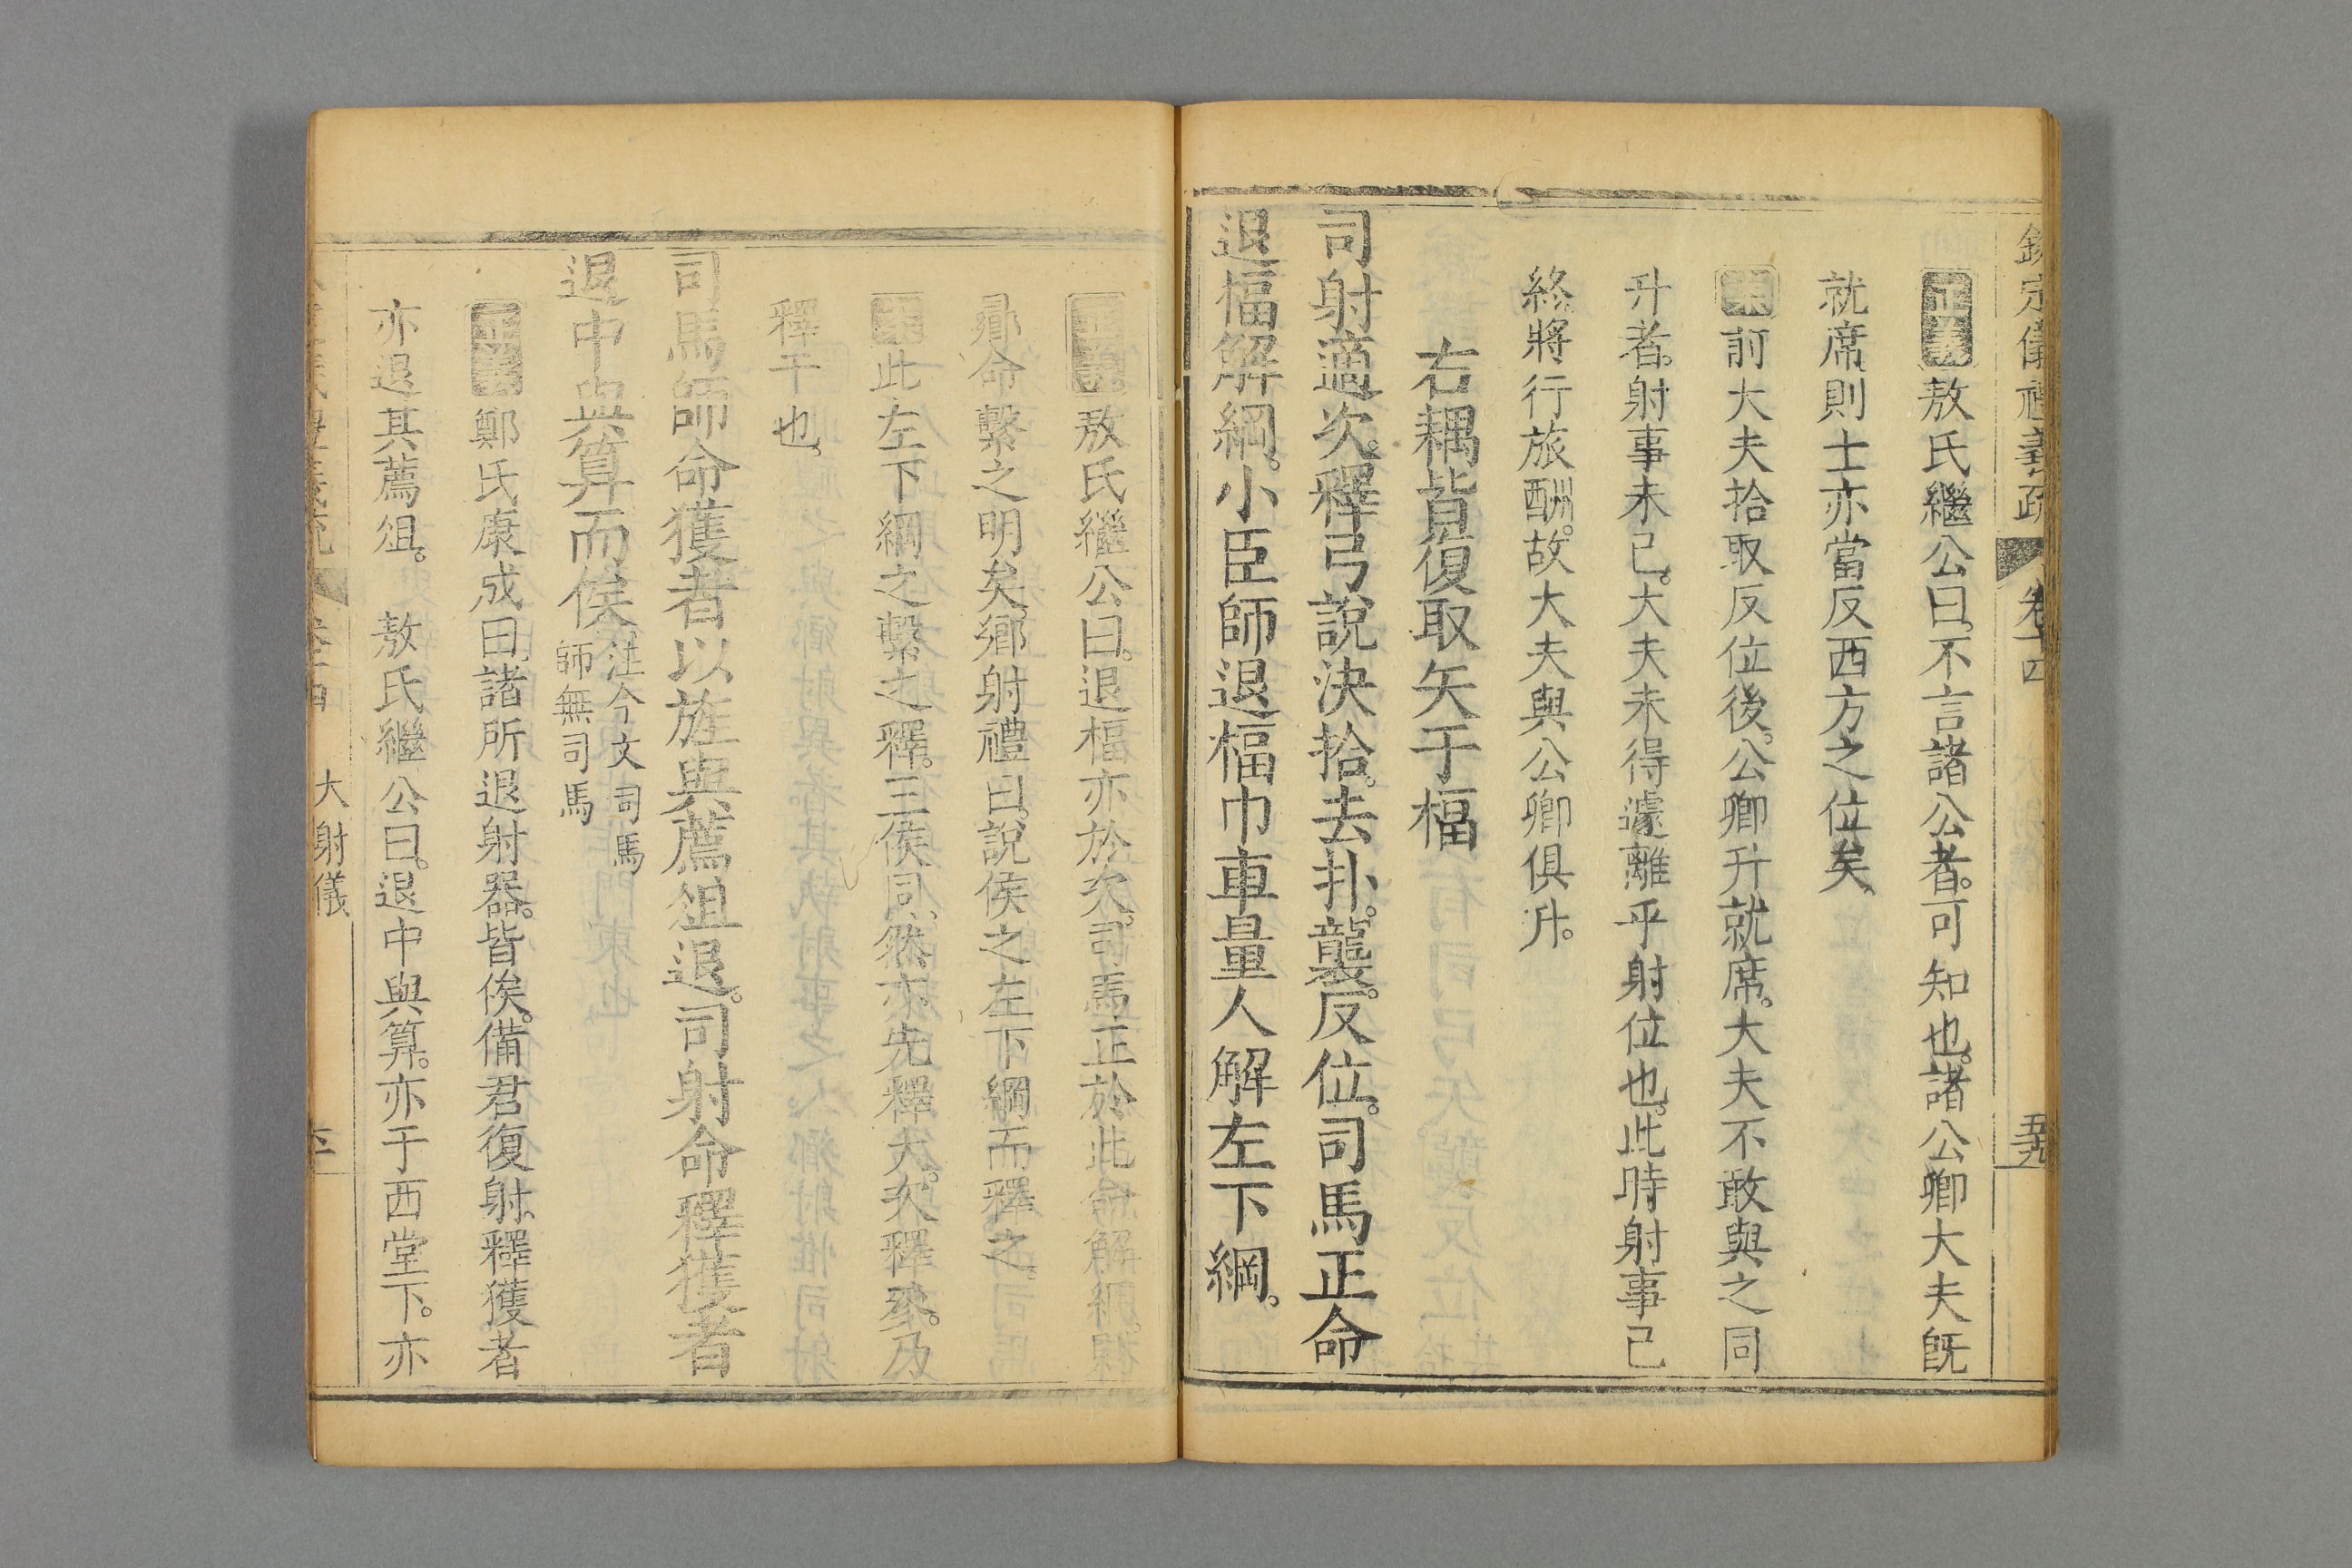 欽定儀禮義疏 卷十四 五十九
正義敖氏繼公曰。不言諸公者。可知也。諸公卿大夫旣
就席。則士亦當反西方之位矣。
案前大夫拾取反位後。公卿升就席。大夫不敢與之同
升者。射事未已。大夫未得遽離乎射位也。此時射事已
終。將行旅酬。故大夫與公卿俱升。
右耦皆復取矢于楅
司射適次。釋弓說決拾。去扑。襲。反位。司馬正命
退楅解綱。小臣師退楅巾車量人解左下綱。
正義敖氏繼公曰。退楅亦於次。司馬正於此命解綱。則
曏命繫之明矣。鄉射禮曰。說侯之左下綱而釋之。
案此左下綱之繫之釋。三侯同然。亦先釋大。次釋參。乃
釋干也。
司馬師命獲者以旌與薦俎退。司射命釋獲者
退中與算而俟注今文司馬
師無司馬
正義鄭氏康成曰。諸所退射器。皆俟。備君復射。釋獲者
亦退其薦俎。 敖氏繼公曰。退中與算。亦于西堂下。亦
大射儀